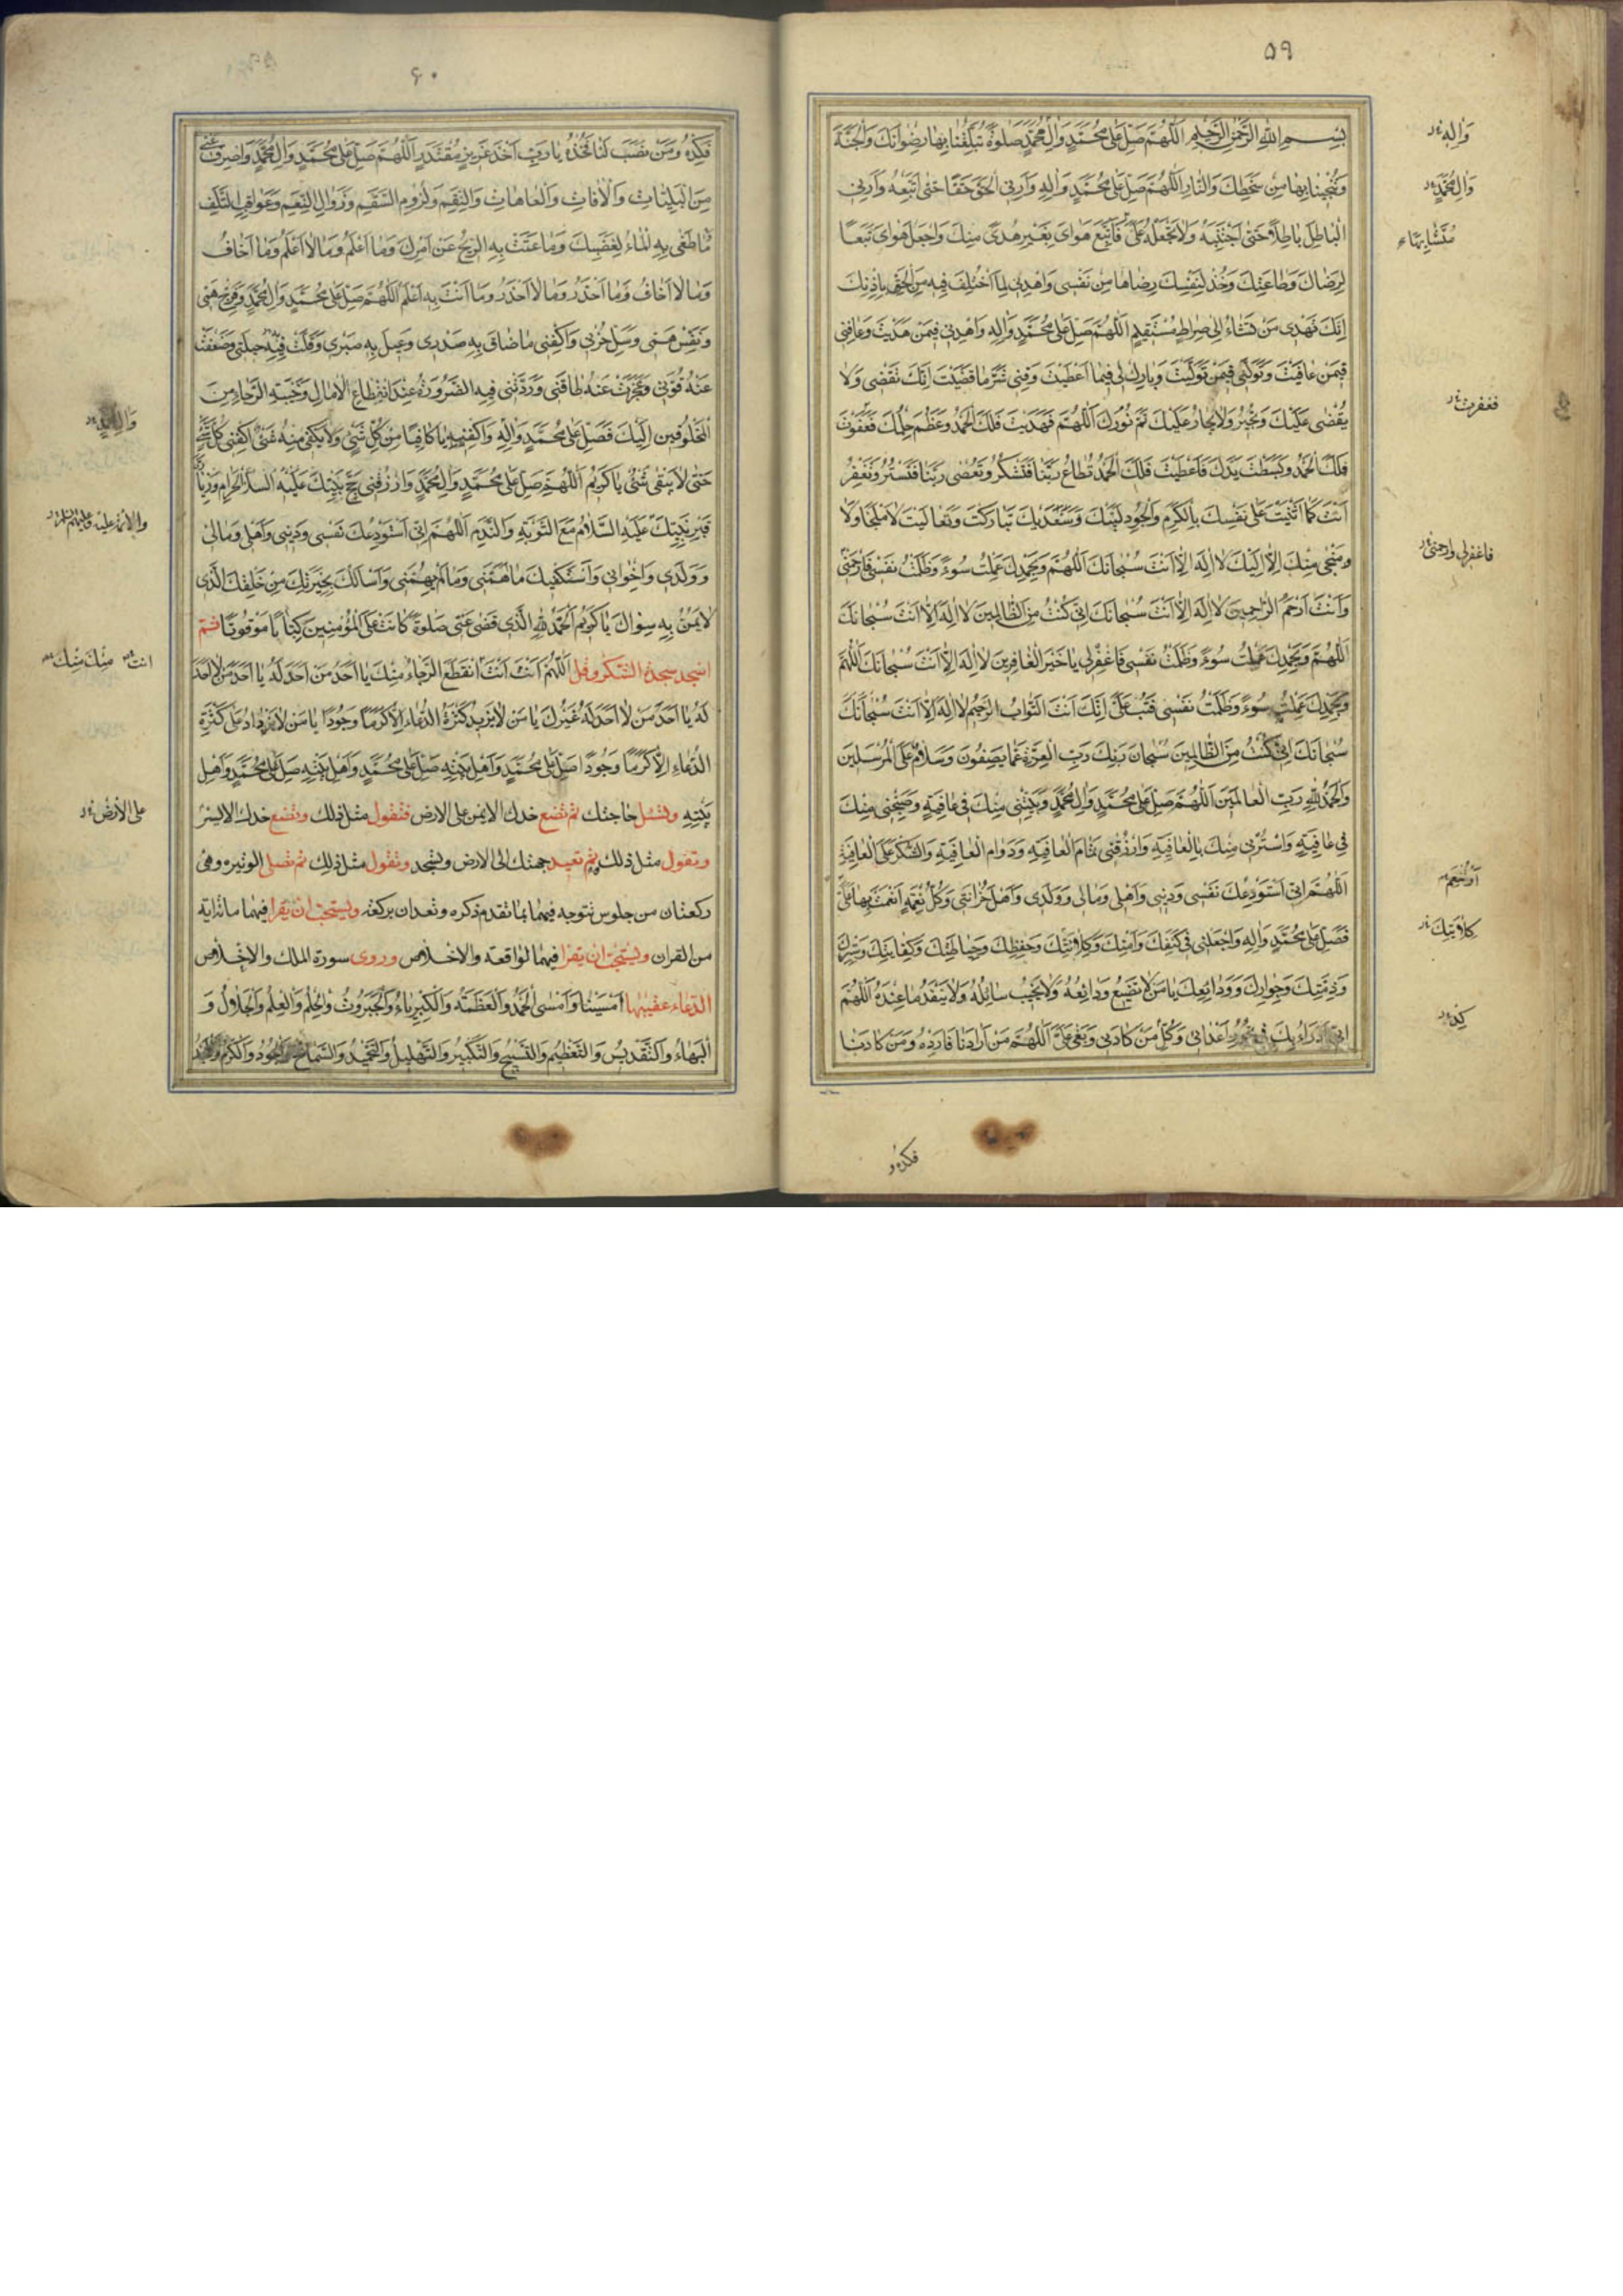 ۵۹
بِسْمِ اللهِ الرَّحْمٰنِ الرَّحِيمِ اَللّٰهُمَّ صَلِّ عَلٰى مُحَمَّدٍ وَاٰلِ مُحَمَّدٍ صَلٰوةً تُبَلِّغُنا بِها رِضْوانَكَ وَالْجَنَّةَ
وَتُنْجِينا بِها مِنْ سَخَطِكَ وَالنّارِ اَللّٰهُمَّ صَلِّ عَلٰى مُحَمَّدٍ وَاٰلِهِ وَاَرِنِى الْحَقَّ حَقًّا حَتّٰى اَتَّبِعَهُ وَاَرِنِى
الْباطِلَ باطِلاً حَتّٰى اَجْتَنِبَهُ وَلا تَجْعَلْهُ عَلَىَّ فَاَتَّبِعَ هَواىَ بِغَيْرِ هُدًى مِنْكَ وَاجْعَلْ هَواىَ تَبَعًا
لِرِضاكَ وَطاعَتِكَ وَخُذْ لِنَفْسِكَ رِضاها مِنْ نَفْسِى وَاهْدِنِى لِمَا اخْتُلِفَ فِيهِ مِنَ الْحَقِّ بِاِذْنِكَ
اِنَّكَ تَهْدِى مَنْ تَشاءُ اِلٰى صِراطٍ مُسْتَقِيمٍ اَللّٰهُمَّ صَلِّ عَلٰى مُحَمَّدٍ وَاٰلِهِ وَاهْدِنِى فِيمَنْ هَدَيْتَ وَعافِنِى
فِيمَنْ عافَيْتَ وَتَوَلَّنِى فِيمَنْ تَوَلَّيْتَ وَبارِكْ لِى فِيما اَعْطَيْتَ وَقِنِى شَرَّ ما قَضَيْتَ اِنَّكَ تَقْضِى وَلا
يُقْضٰى عَلَيْكَ وَتُجِيرُ وَلا يُجارُ عَلَيْكَ تَمَّ نُورُكَ اَللّٰهُمَّ فَهَدَيْتَ فَلَكَ الْحَمْدُ وَعَظُمَ حِلْمُكَ فَعَفَوْتَ
فَلَكَ الْحَمْدُ وَبَسَطْتَ يَدَكَ فَاَعْطَيْتَ فَلَكَ الْحَمْدُ تُطاعُ رَبَّنا فَتَشْكُرُ وَتُعْصٰى رَبَّنا فَتَسْتُرُ وَتَغْفِرُ
اَنْتَ كَما اَثْنَيْتَ عَلٰى نَفْسِكَ بِالْكَرَمِ وَالْجُودِ لَبَّيْكَ وَسَعْدَيْكَ تَبارَكْتَ وَتَعالَيْتَ لا مَلْجَأَ وَلا
وَمَنْجٰى مِنْكَ اِلّا اِلَيْكَ لا اِلٰهَ اِلّا اَنْتَ سُبْحانَكَ اَللّٰهُمَّ وَبِحَمْدِكَ عَمِلْتُ سُوءً وَظَلَمْتُ نَفْسِى فَارْحَمْنِى
وَاَنْتَ اَرْحَمُ الرّاحِمِينَ لا اِلٰهَ اِلّا اَنْتَ سُبْحانَكَ اِنِّى كُنْتُ مِنَ الظّالِمِينَ لا اِلٰهَ اِلّا اَنْتَ سُبْحانَكَ
اَللّٰهُمَّ وَبِحَمْدِكَ عَمِلْتُ سُوءً وَظَلَمْتُ نَفْسِى فَاغْفِرْ لِى يا خَيْرَ الْغافِرِينَ لا اِلٰهَ اِلّا اَنْتَ سُبْحانَكَ اَللّٰهُمَّ
وَبِحَمْدِكَ عَمِلْتُ سُوءً وَظَلَمْتُ نَفْسِى فَتُبْ عَلَىَّ اِنَّكَ اَنْتَ التَّوّابُ الرَّحِيمُ لا اِلٰهَ اِلّا اَنْتَ سُبْحانَكَ
سُبْحانَكَ اِنِّى كُنْتُ مِنَ الظّالِمِينَ سُبْحانَ رَبِّكَ رَبِّ الْعِزَّةِ عَمّا يَصِفُونَ وَسَلامٌ عَلَى الْمُرْسَلِينَ
وَالْحَمْدُ لِلّٰهِ رَبِّ الْعالَمِينَ اَللّٰهُمَّ صَلِّ عَلٰى مُحَمَّدٍ وَاٰلِ مُحَمَّدٍ وَبَيِّتْنِى مِنْكَ فِى عافِيَةٍ وَصَبِّحْنِى مِنْكَ
فِى عافِيَةٍ وَاسْتُرْنِى مِنْكَ بِالْعافِيَةِ وَارْزُقْنِى تَمامَ الْعافِيَةِ وَدَوامَ الْعافِيَةِ وَالشُّكْرَ عَلَى الْعافِيَةِ
اَللّٰهُمَّ اِنِّى اَسْتَوْدِعُكَ نَفْسِى وَدِينِى وَاَهْلِى وَمالِى وَوَلَدِى وَاَهْلَ حُزانَتِى وَكُلَّ نِعْمَةٍ اَنْعَمْتَ بِها عَلَىَّ
فَصَلِّ عَلٰى مُحَمَّدٍ وَاٰلِهِ وَاجْعَلْنِى فِى كَنَفِكَ وَاَمْنِكَ وَكِلاءَتِكَ وَحِفْظِكَ وَحِياطَتِكَ وَكِفايَتِكَ وَسِتْرِكَ
وَذِمَّتِكَ وَجِوارِكَ وَوَدائِعِكَ يا مَنْ لا تَضِيعُ وَدائِعُهُ وَلا يَخِيبُ سائِلُهُ وَلا يَنْفَدُ ما عِنْدَهُ اَللّٰهُمَّ
اِنِّى اَدْرَاُ بِكَ فِى نُحُورِ اَعْدائِى وَكُلِّ مَنْ كادَنِى وَبَغٰى عَلَىَّ اَللّٰهُمَّ مَنْ اَرادَنا فَارِدْهُ وَمَنْ كادَنا
وَاٰلِهِ
وَاٰلِ مُحَمَّدٍ
مُتَشابِهًا
فغفرت
فاغفرلى وارحمنى
كِلاءَتِكَ
كِدْهُ
فكده
۶۰
فَكِدْهُ وَمَنْ نَصَبَ لَنا فَخُذْهُ يا رَبِّ اَخْذَ عَزِيزٍ مُقْتَدِرٍ اَللّٰهُمَّ صَلِّ عَلٰى مُحَمَّدٍ وَاٰلِ مُحَمَّدٍ وَاصْرِفْ عَنِّى
مِنَ الْبَلِيّاتِ وَالْاٰفاتِ وَالْعاهاتِ وَالنِّقَمِ وَلُزُومِ السَّقَمِ وَزَوالِ النِّعَمِ وَعَواقِبِ التَّلَفِ
ما طَغٰى بِهِ الْماءُ لِغَضَبِكَ وَما عَتَتْ بِهِ الرِّيحُ عَنْ اَمْرِكَ وَما اَعْلَمُ وَما لا اَعْلَمُ وَما اَخافُ
وَما لا اَخافُ وَما اَحْذَرُ وَما لا اَحْذَرُ وَما اَنْتَ بِهِ اَعْلَمُ اَللّٰهُمَّ صَلِّ عَلٰى مُحَمَّدٍ وَاٰلِ مُحَمَّدٍ وَفَرِّجْ هَمِّى
وَنَفِّسْ غَمِّى وَسَلِّ حُزْنِى وَاكْفِنِى ما ضاقَ بِهِ صَدْرِى وَعِيلَ بِهِ صَبْرِى وَقَلَّتْ فِيهِ حِيلَتِى وَضَعُفَتْ
عَنْهُ قُوَّتِى وَعَجَزَتْ عَنْهُ طاقَتِى وَرَدَّتْنِى فِيهِ الضَّرُورَةُ عِنْدَ انْقِطاعِ الْاٰمالِ وَخَيْبَةِ الرَّجاءِ مِنَ
الْمَخْلُوقِينَ اِلَيْكَ فَصَلِّ عَلٰى مُحَمَّدٍ وَاٰلِهِ وَاكْفِنِيهِ يا كافِيًا مِنْ كُلِّ شَىْءٍ وَلا يَكْفِى مِنْهُ شَىْءٌ اِكْفِنِى كُلَّ شَىْءٍ
حَتّٰى لا يَبْقٰى شَىْءٌ يا كَرِيمُ اَللّٰهُمَّ صَلِّ عَلٰى مُحَمَّدٍ وَاٰلِ مُحَمَّدٍ وَارْزُقْنِى حَجَّ بَيْتِكَ الْحَرامِ وَزِيارَةَ
قَبْرِ نَبِيِّكَ عَلَيْهِ السَّلامُ مَعَ التَّوْبَةِ وَالنَّدَمِ اَللّٰهُمَّ اِنِّى اَسْتَوْدِعُكَ نَفْسِى وَدِينِى وَاَهْلِى وَمالِى
وَوَلَدِى وَاِخْوانِى وَاَسْتَكْفِيكَ ما اَهَمَّنِى وَما لَمْ يُهِمَّنِى وَاَسْاَلُكَ بِخِيَرَتِكَ مِنْ خَلْقِكَ الَّذِى
لا يَمُنُّ بِهِ سِواكَ يا كَرِيمُ اَلْحَمْدُ لِلّٰهِ الَّذِى قَضٰى عَنِّى صَلٰوةً كانَتْ عَلَى الْمُؤْمِنِينَ كِتابًا مَوْقُوتًا ثم
اسجد سجدة الشكر وقل اَللّٰهُمَّ اَنْتَ اَنْتَ اِنْقَطَعَ الرَّجاءُ مِنْكَ يا اَحَدَ مَنْ لا اَحَدَ لَهُ يا اَحَدَ مَنْ لا اَحَدَ
لَهُ يا اَحَدَ مَنْ لا اَحَدَ لَهُ غَيْرُكَ يا مَنْ لا يَزِيدُ كَثْرَةُ الدُّعاءِ اِلّا كَرَمًا وَجُودًا يا مَنْ لا يَزْدادُ عَلٰى كَثْرَةِ
الدُّعاءِ اِلّا كَرَمًا وَجُودًا صَلِّ عَلٰى مُحَمَّدٍ وَاَهْلِ بَيْتِهِ صَلِّ عَلٰى مُحَمَّدٍ وَاَهْلِ بَيْتِهِ صَلِّ عَلٰى مُحَمَّدٍ وَاَهْلِ
بَيْتِهِ وتسئل حاجتك ثم تضع خدك الايمن على الارض فتقول مثل ذلك وتضع خدك الايسر
وتقول مثل ذلك ثم تعيد جبهتك الى الارض وتسجد وتقول مثل ذلك ثم تصلى الوتيره وهى
ركعتان من جلوس تتوجه فيهما بما تقدم ذكره وتعدان بركعة ويستحب ان يقرا فيهما مائة اية
من القران ويستحب ان يقرا فيهما الواقعة والاخلاص وروى سورة الملك والاخلاص
الدعاء عقيبهما اَمْسَيْنا وَاَمْسَى الْحَمْدُ وَالْعَظَمَةُ وَالْكِبْرِياءُ وَالْجَبَرُوتُ وَالْحِلْمُ وَالْعِلْمُ وَالْجَلالُ وَ
الْبَهاءُ وَالتَّقْدِيسُ وَالتَّعْظِيمُ وَالتَّسْبِيحُ وَالتَّكْبِيرُ وَالتَّهْلِيلُ وَالتَّحْمِيدُ وَالسَّماحُ وَالْجُودُ وَالْكَرَمُ وَالْمَجْدُ
انت منك منك
على الارض